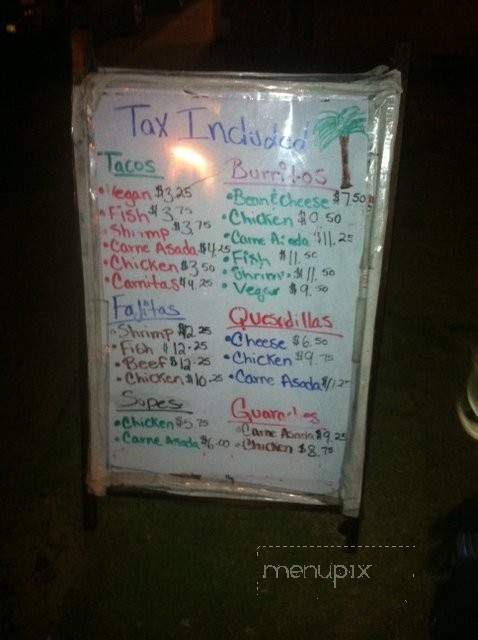 Tax Included
Tacos
• Vegan $3.25
• Fish $3.75
• Shrimp $3.75
• Carne Asada $4.25
• Chicken $3.50
• Carnitas $4.25
Fajitas
• Shrimp $12.25
• Fish $12.25
• Beef $12.25
• Chicken $10.25
Sopes
• Chicken $5.75
• Carne Asada $6.00
Burritos
• Bean & Cheese $7.50
• Chicken $0.50
• Carne Asada $11.25
• Fish $11.50
• Shrimp $11.50
• Vegan $9.50
Quesdillas
• Cheese $6.50
• Chicken $9.75
• Carne Asada $11.25
• Carne Asada $9.25
• Chicken $8.75
menupix